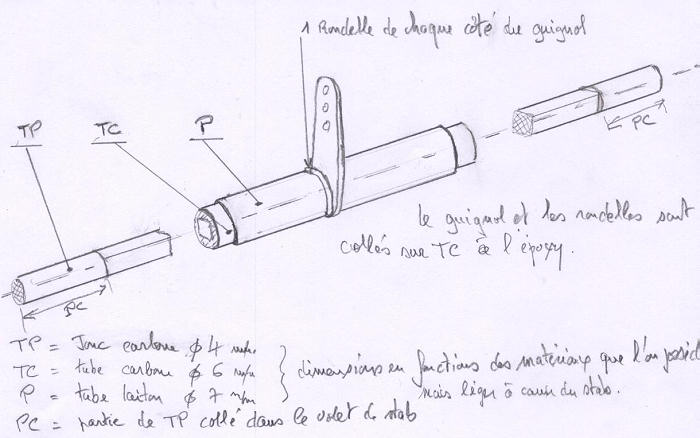 1 Rondelle de chaque côté du guignol
TP
TC
P
PC
le guignol et les rondelles sont
collés sur TC à l'époxy.
PC
TP = Jonc carbone ϕ 4 m/m
TC = tube carbone ϕ 6 m/m
P = tube laiton ϕ 7 m/m
dimensions en fonctions des matériaux que l'on possèd
mais léger à cause du stab.
PC = partie de TP collé dans le volet de stab